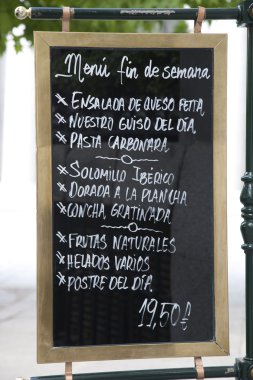 Menú fin de semana
* ENSALADA DE QUESO FETTA
* NUESTRO GUISO DEL DÍA.
* PASTA CARBONARA
* SOLOMILLO IBÉRICO
* DORADA A LA PLANCHA
* CONCHA GRATINADA
* FRUTAS NATURALES
* HELADOS VARIOS
* POSTRE DEL DÍA.
19,50€